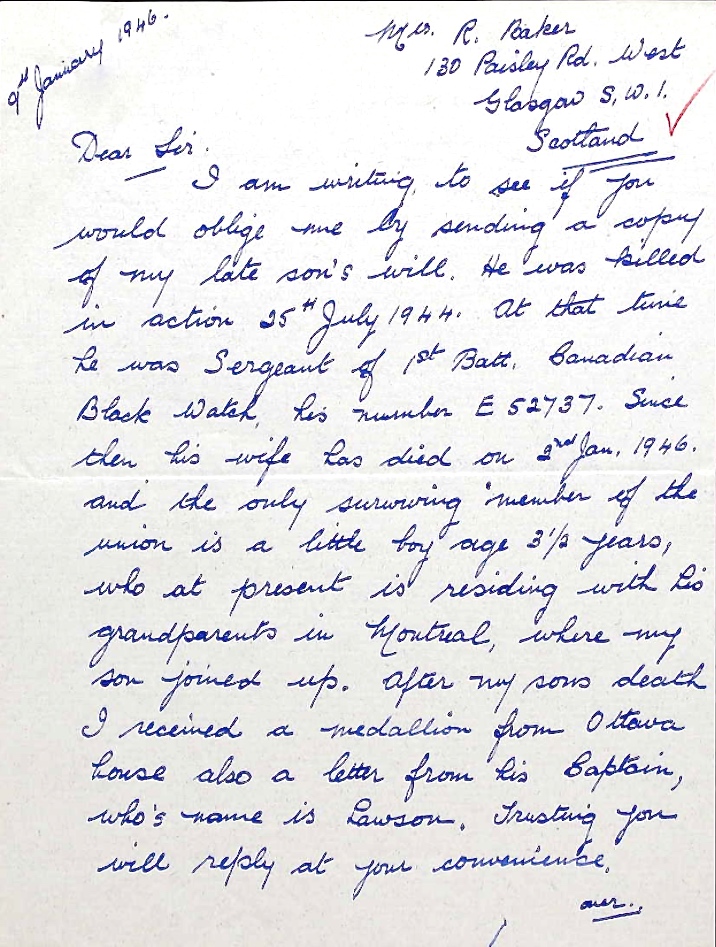 9th January 1946.
Mrs. R. Baker
130 Paisley Rd. West
Glasgow S.W.1.
Scotland
Dear Sir.
I am writing, to see if you
would oblige me by sending a copy
of my late son's will. He was killed
in action 25th July 1944. At that time
he was Sergeant of 1st Batt. Canadian
Black Watch, his number E 52737. Since
then his wife has died on 2nd Jan. 1946.
and the only surviving member of the
union is a little boy age 3 1/2 years,
who at present is residing with his
grandparents in Montreal, where my
son joined up. After my sons death
I received a medallion from Ottawa
house also a letter from his Captain,
who's name is Lawson. Trusting you
will reply at your convenience.
over.